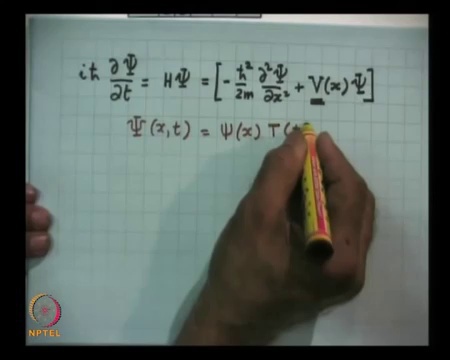 iℏ ∂Ψ/∂t = HΨ = [- ℏ²/2m ∂²Ψ/∂x² + V(x) Ψ]
Ψ(x,t) = ψ(x) T(
NPTEL